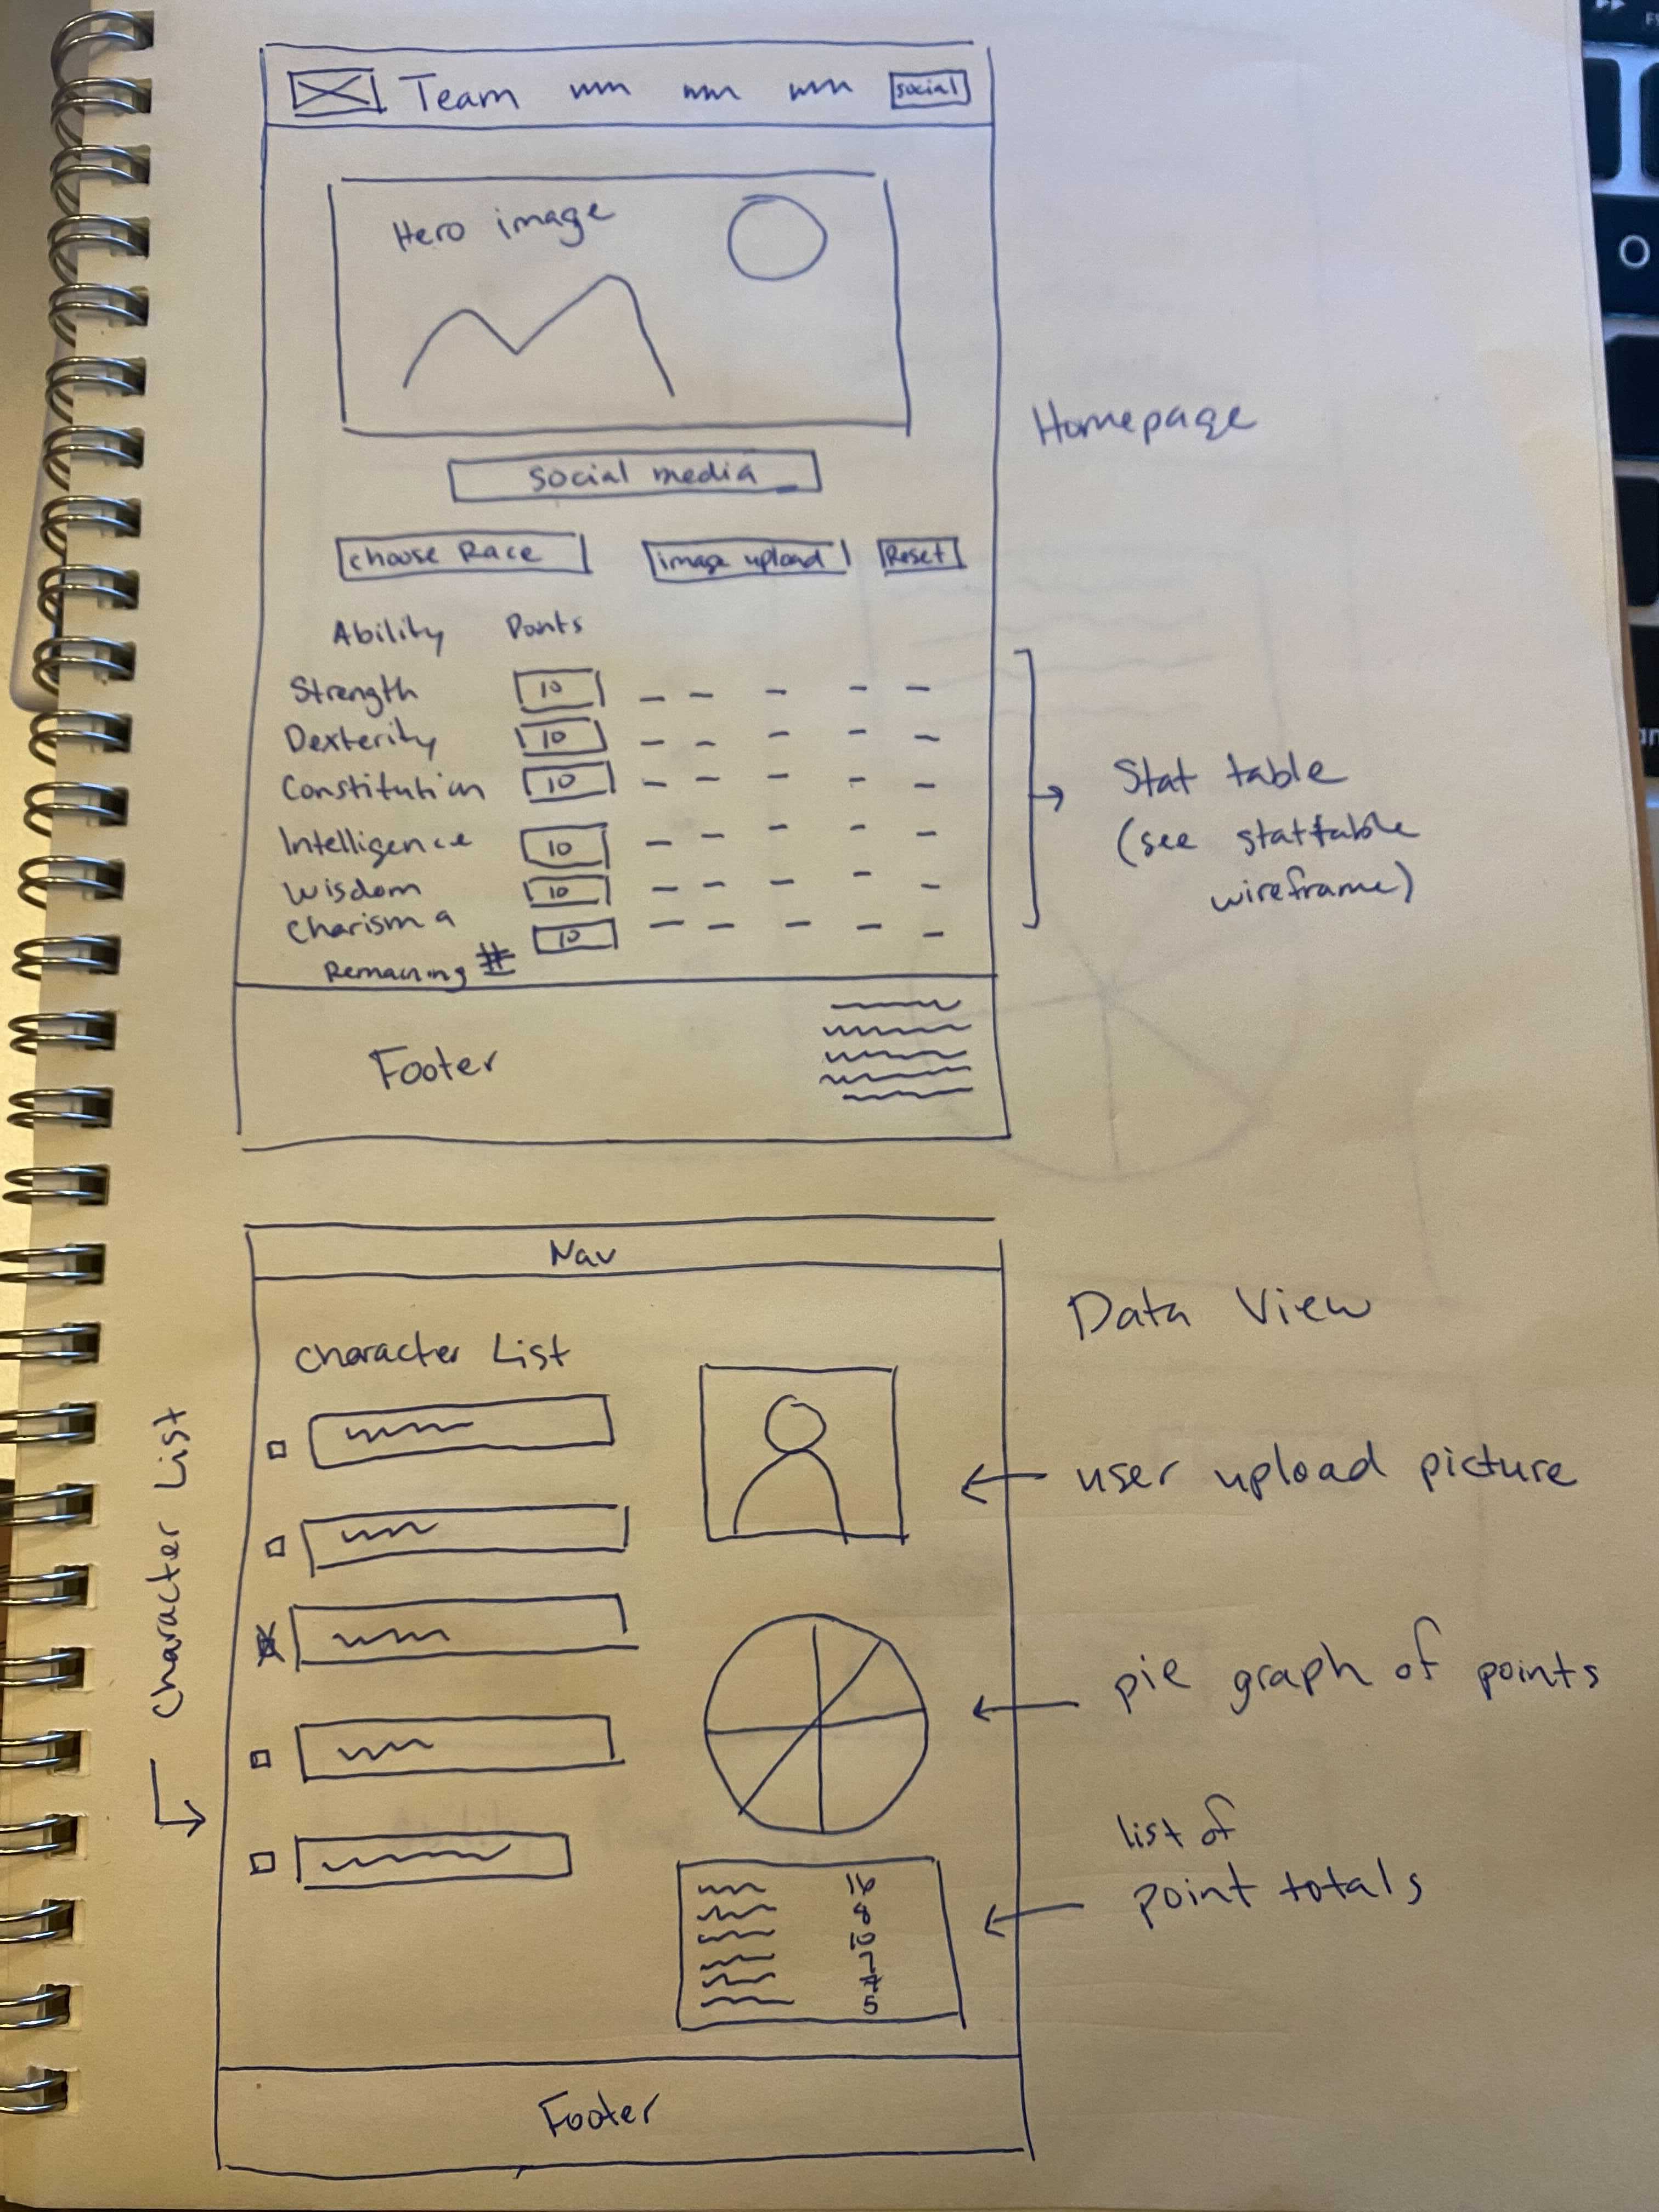 Team social
Hero image
Homepage
social media
choose Race image upload Reset
Ability Points
Strength 10
Dexterity 10
Constitution 10
Intelligence 10
Wisdom 10
Charisma 10
Remaining #
Stat table
(see stattable
wireframe)
Footer
Nav
Data View
Character List
Character List
user upload picture
pie graph of points
list of
point totals
16
8
10
7
#
5
Footer
O